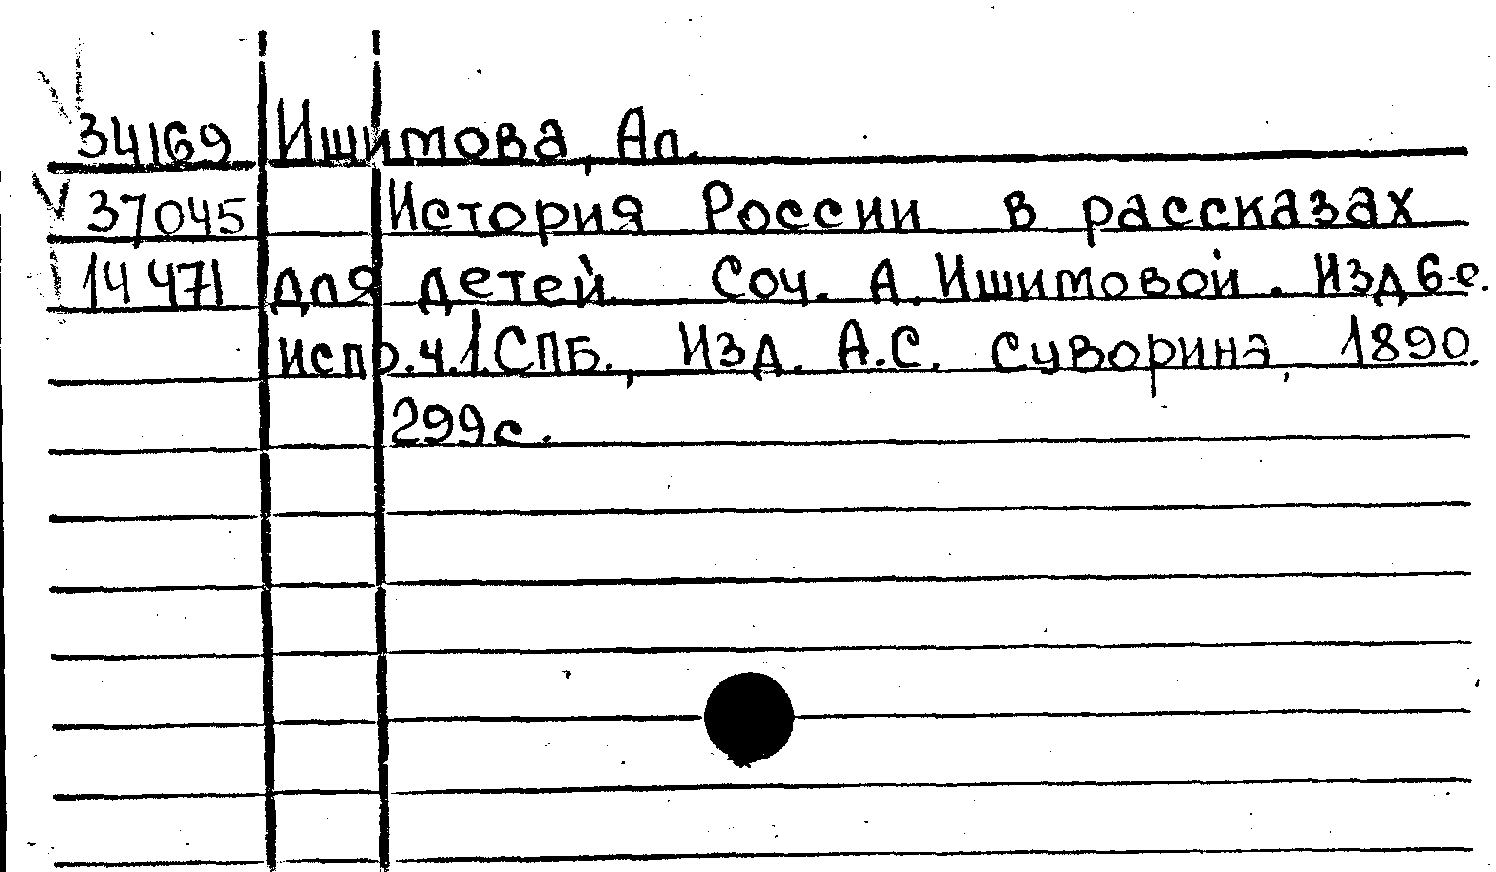 34169 Ишимова, Ал.
37045 История России в рассказах
14471 для детей. Соч. А. Ишимовой. Изд 6-е.
испр. ч. 1. СПБ., Изд. А.С. Суворина, 1890.
299с.